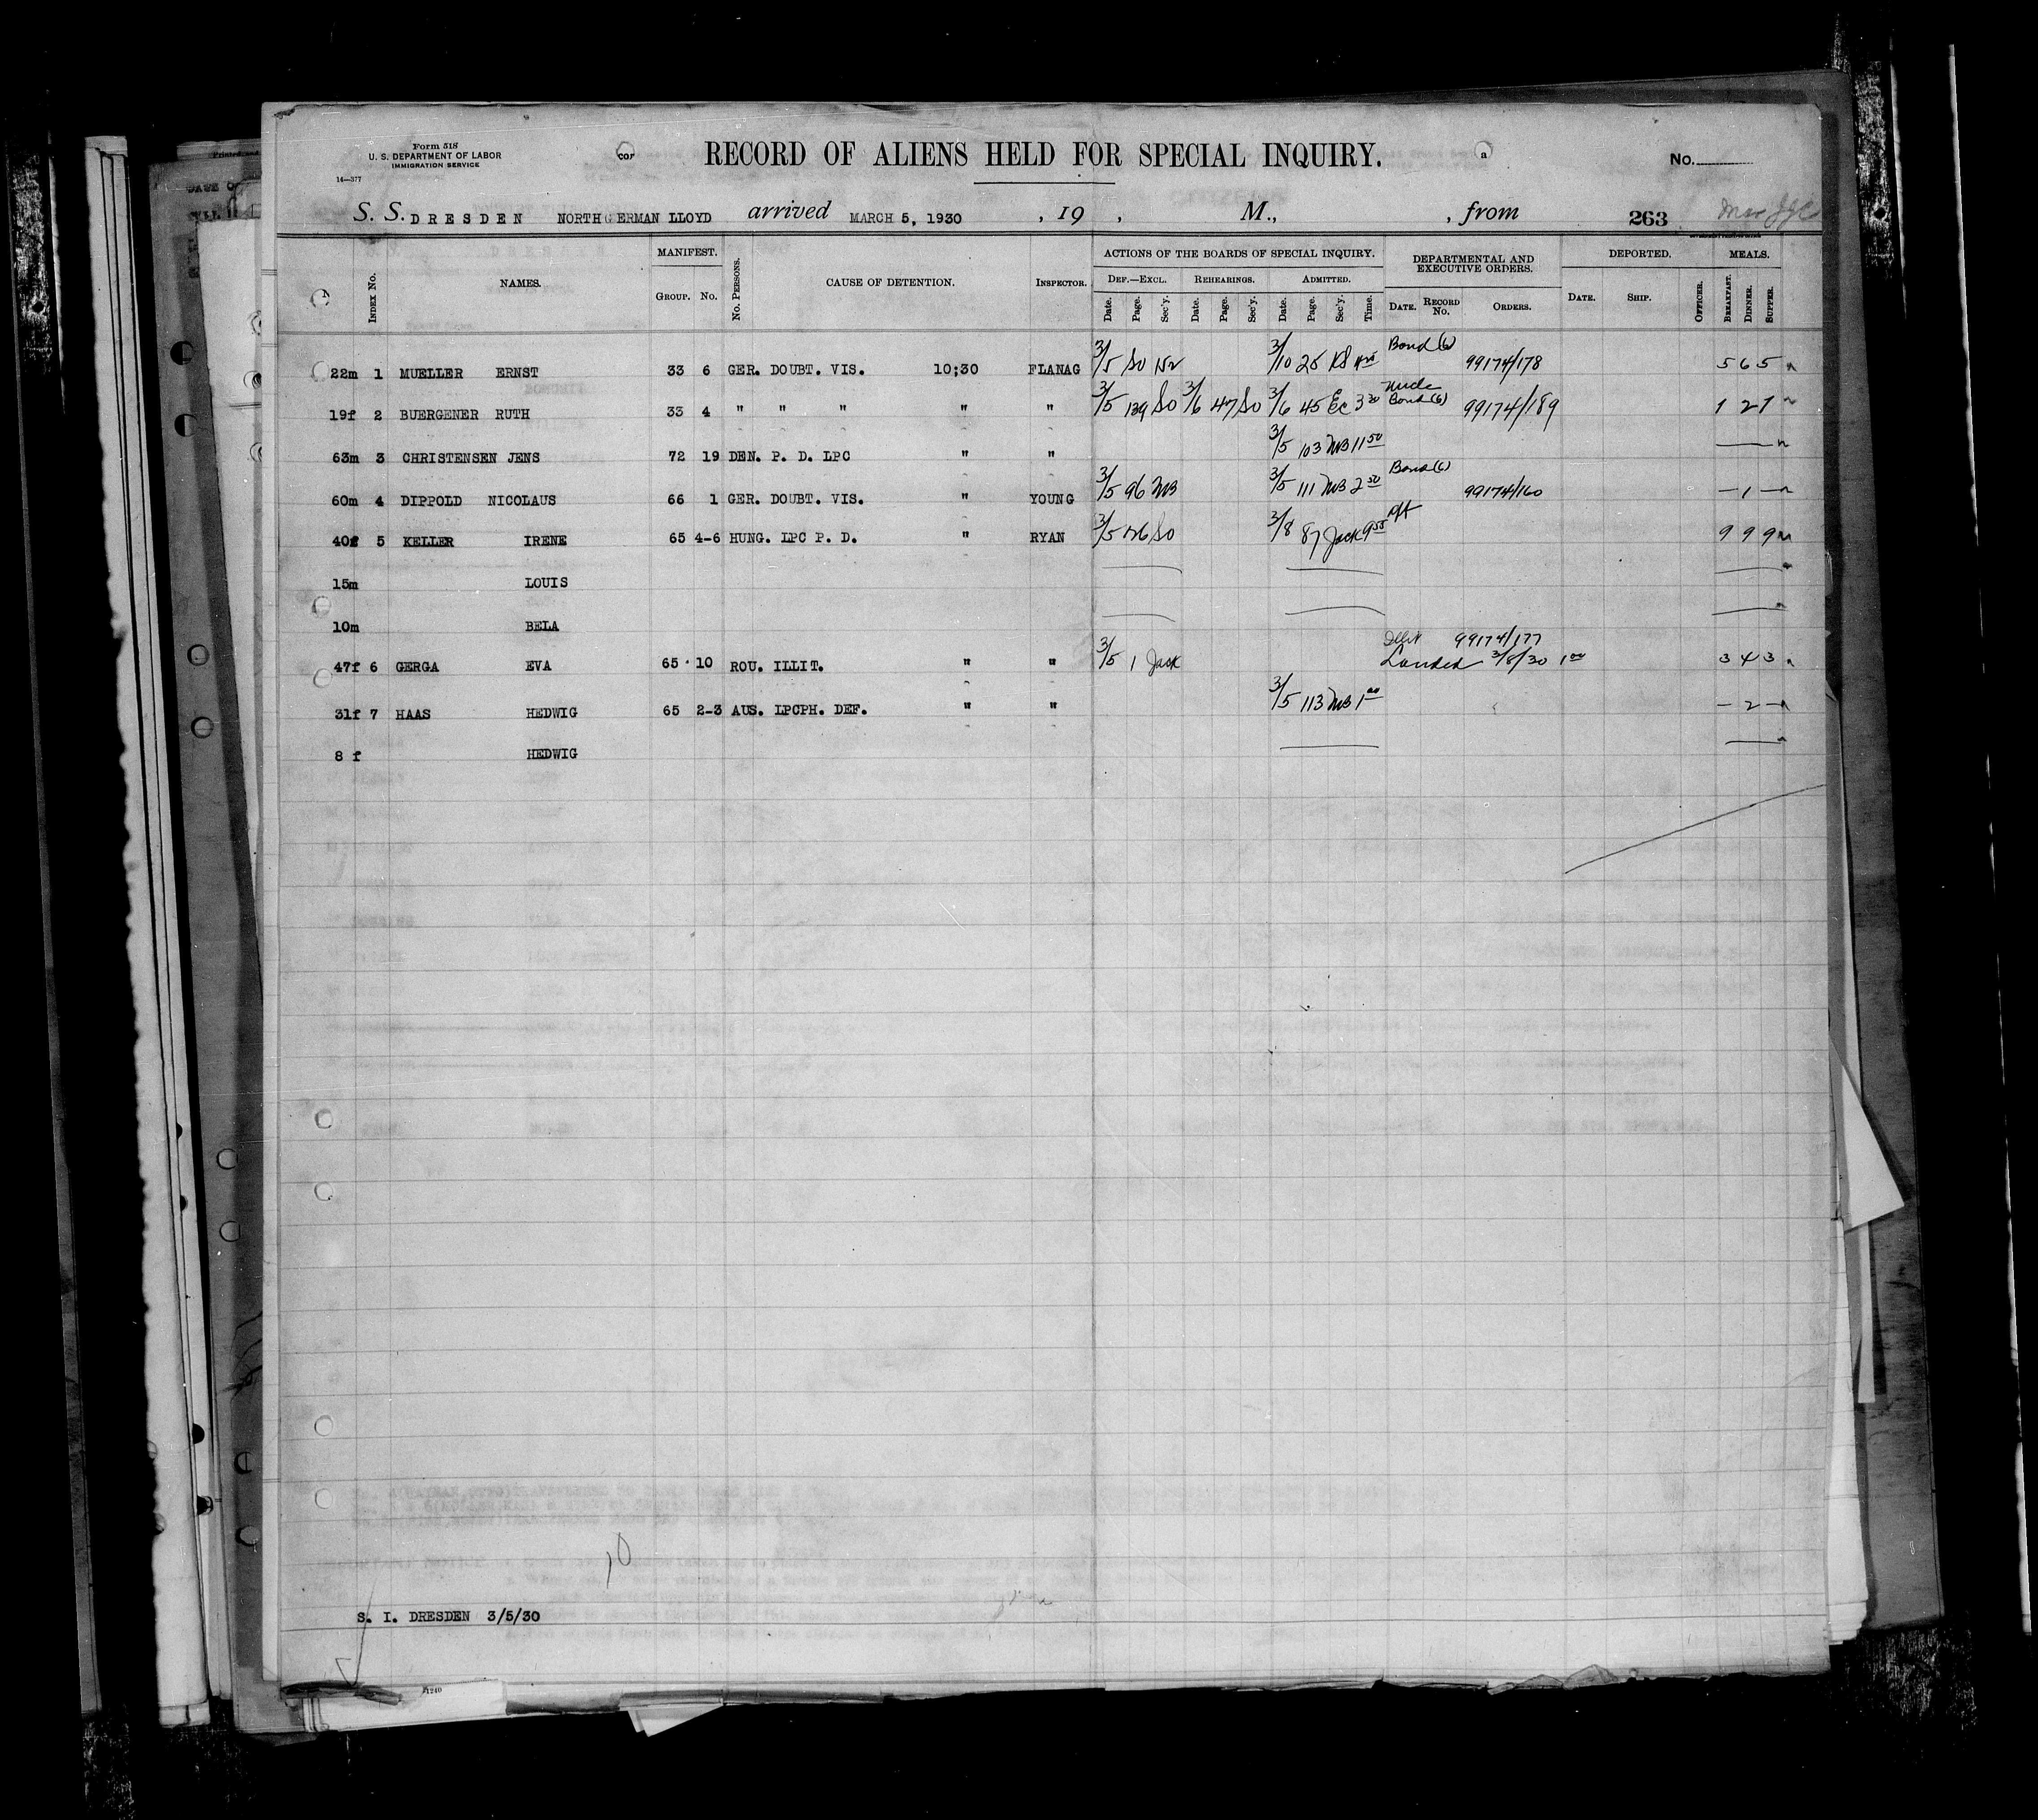 Form 518
U. S. DEPARTMENT OF LABOR
IMMIGRATION SERVICE
14—377
cor
RECORD OF ALIENS HELD FOR SPECIAL INQUIRY.
a
No.
S. S. DRESDEN NORTH GERMAN LLOYD arrived MARCH 5, 1930 , 19 , M., , from 263
INDEX No. NAMES. MANIFEST. GROUP. No. No. PERSONS. CAUSE OF DETENTION. INSPECTOR. ACTIONS OF THE BOARDS OF SPECIAL INQUIRY. DEF.—EXCL. REHEARINGS. ADMITTED. DEPARTMENTAL AND EXECUTIVE ORDERS. DEPORTED. MEALS.
Date. Page. Sec'y. Date. Page. Sec'y. Date. Page. Sec'y. Time. DATE. RECORD No. ORDERS. DATE. SHIP. OFFICER. BREAKFAST. DINNER. SUPPER.
22m 1 MUELLER ERNST 33 6 GER. DOUBT. VIS. 10;30 FLANAG 3/5 3/10 25 Bond (6) 99174/178 5 6 5
19f 2 BUERGENER RUTH 33 4 " " " " " 3/5 139 So 3/6 47 So 3/6 45 Ec 3 30 Bond (6) 99174/189 1 2 1
63m 3 CHRISTENSEN JENS 72 19 DEN. P. D. LPC " " 3/5 103 MB 11 50
60m 4 DIPPOLD NICOLAUS 66 1 GER. DOUBT. VIS. " YOUNG 3/5 96 MB 3/5 111 MB 2 50 Bond (6) 99174/160 — 1 —
40f 5 KELLER IRENE 65 4-6 HUNG. LPC P. D. " RYAN 3/5 126 So 3/8 87 Jack 9 55 9 9 9
15m LOUIS
10m BELA
47f 6 GERGA EVA 65 10 ROU. ILLIT. " " 3/5 1 Jack 99174/177 Landed 3/8/30 1 00 3 4 3
31f 7 HAAS HEDWIG 65 2-3 AUS. LPCPH. DEF. " " 3/5 113 MB 1 00 — 2 —
8 f HEDWIG
10
S. I. DRESDEN 3/5/30
1240